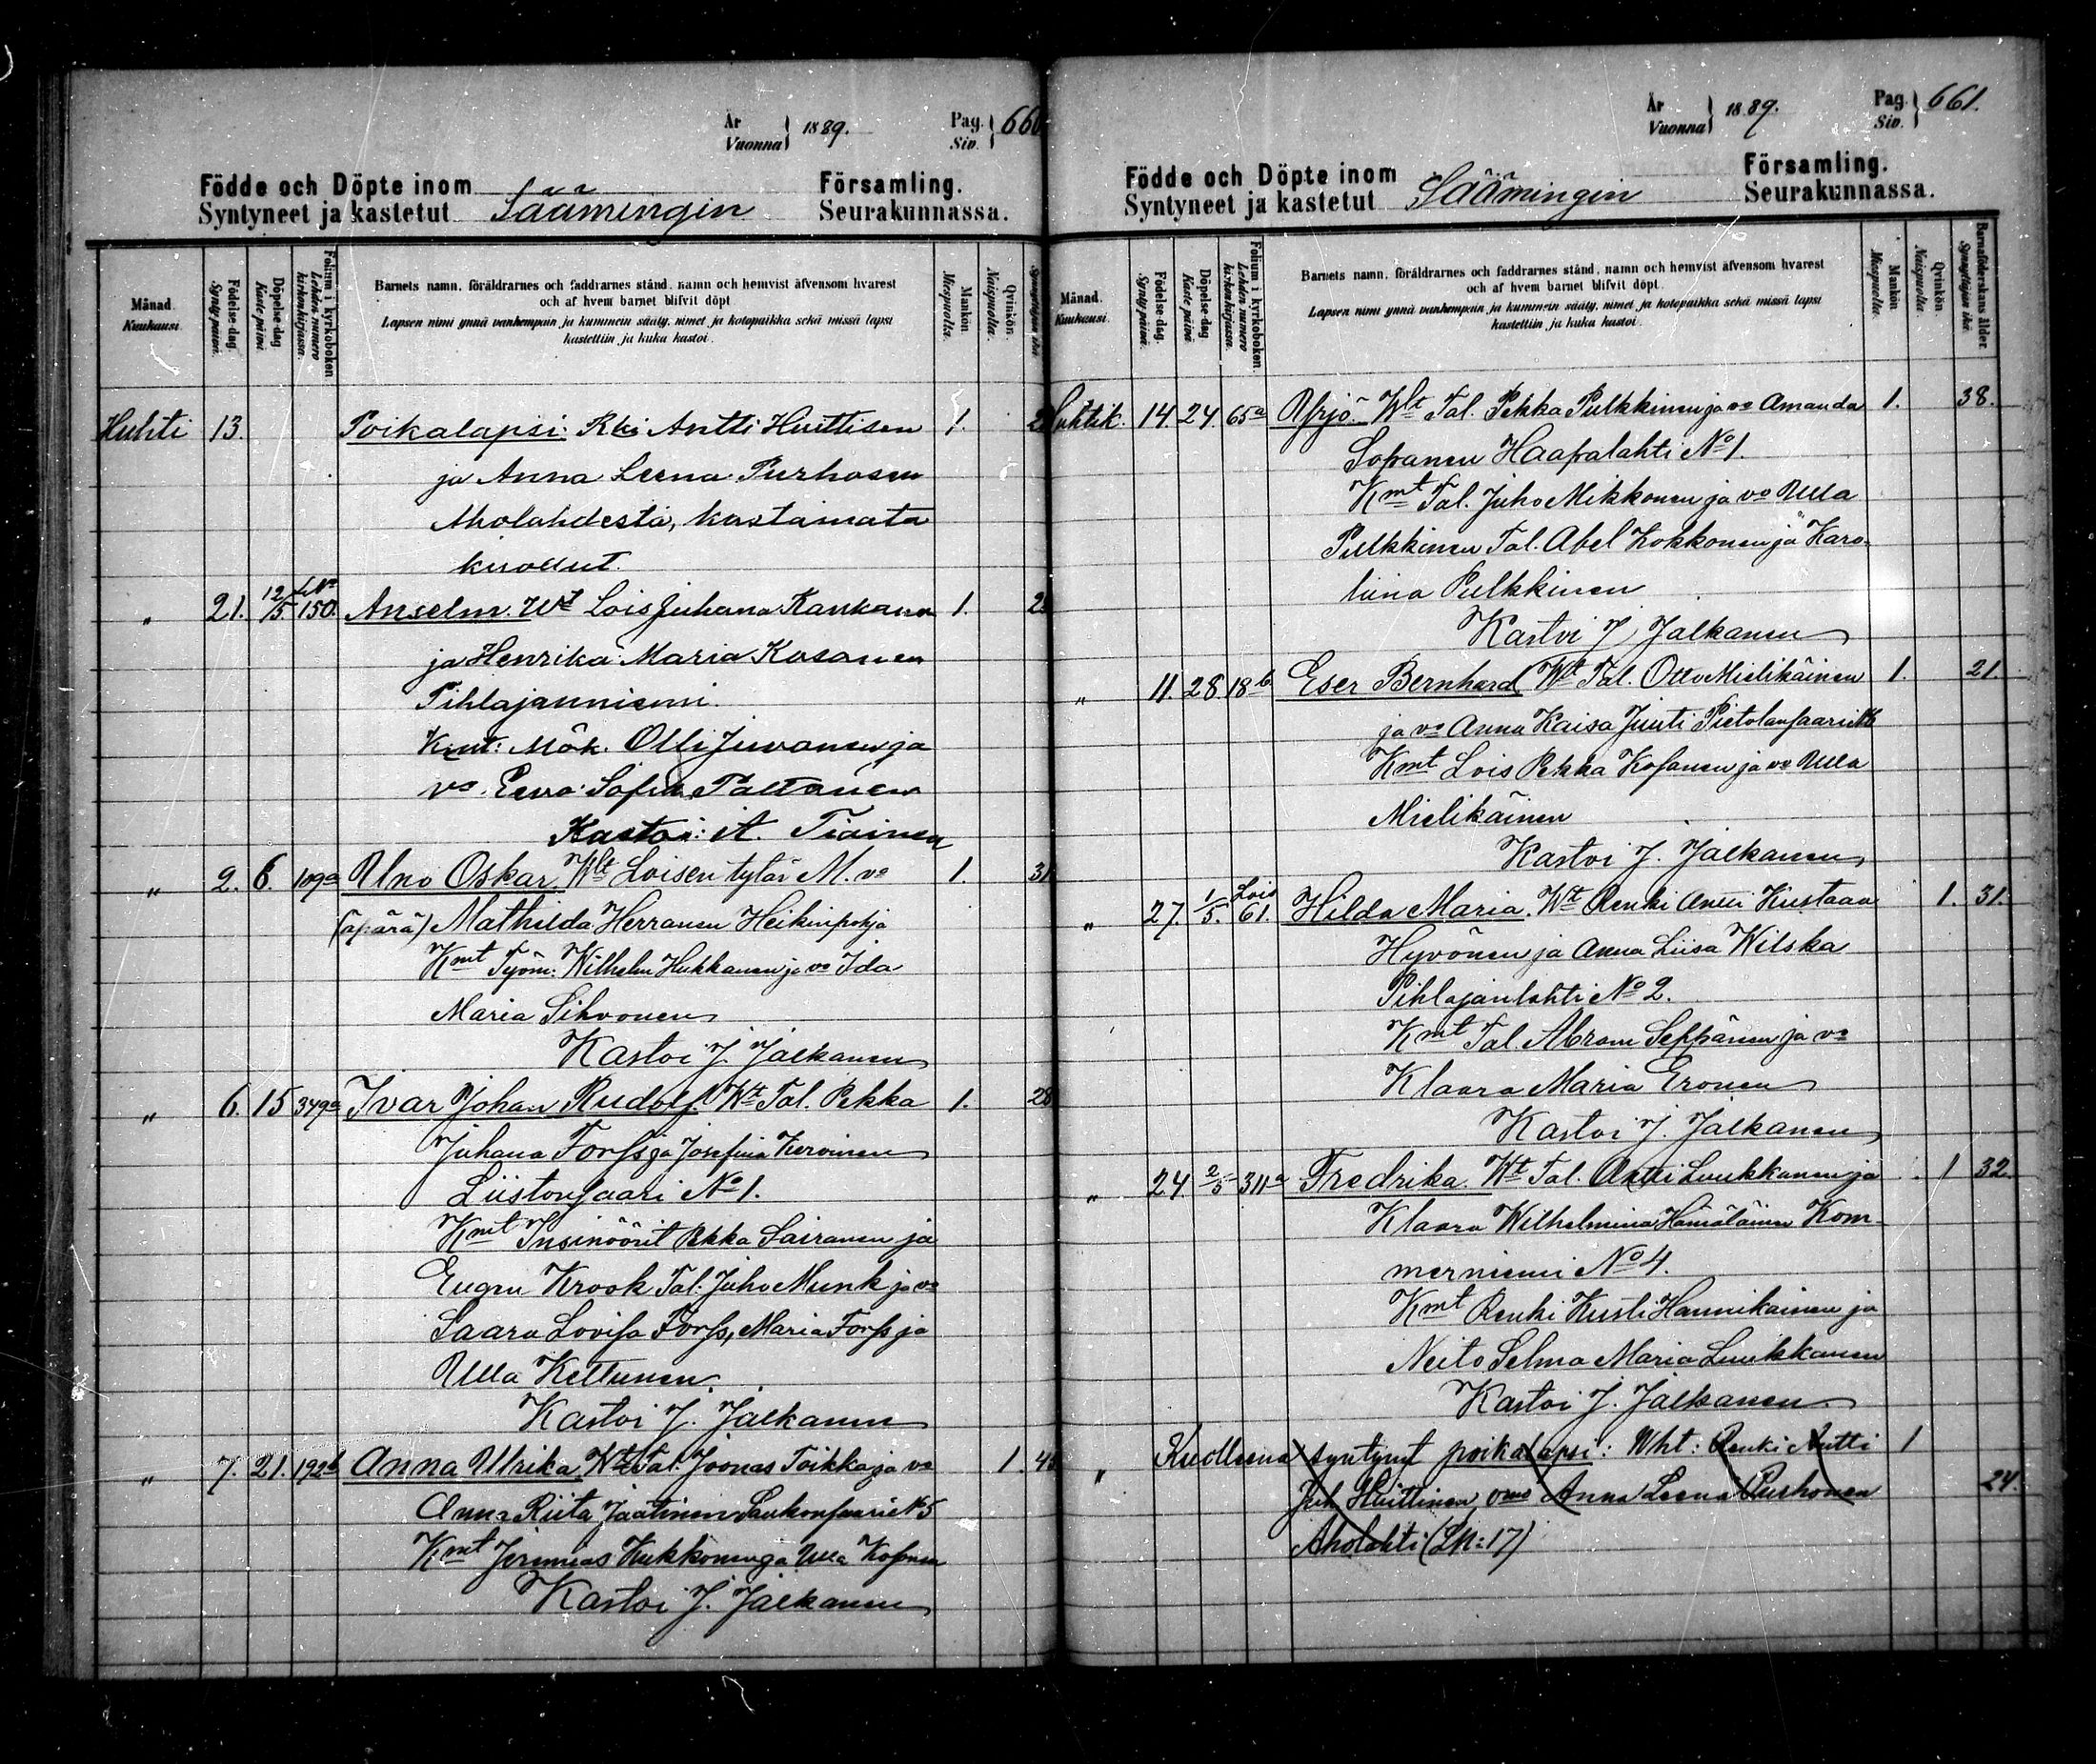 År
Vuonna } 1889.
Pag.
Siv. } 660
Födde och Döpte inom Församling.
Syntyneet ja kastetut Säämingin Seurakunnassa.
Månad.
Kuukausi.
Födelse-dag.
Synty päivä.
Döpelse-dag
Kaste päivä
Folium i kyrkoboken
Lehden numero
kirkonkirjassa.
Barnets namn, föräldrarnes och faddrarnes stånd, namn och hemvist äfvensom hvarest
och af hvem barnet blifvit döpt
Lapsen nimi ynnä vanhempain ja kummein sääty, nimet ja kotopaikka sekä missä lapsi
kastettiin ja kuka kastoi.
Mankön
Miespuolia.
Qvinkön.
Naispuolia.
Huhti 13. Poikalapsi: Rki Antti Huittisen 1.
ja Anna Leena Purhosen
Aholahdesta, kastamata
kuollut.
" 21. 12/5. LNo 150. Anselm. Wt Lois Juhana Kaukanen 1.
ja Henrika Maria Kosonen
Pihlajanniemi.
Kmt: Mök. Olli Juvonen ja
vo Eeva Sofia Paltanen
Kastoi: A. Tiainen
" 2. 6. 109a Uno Oskar. Wlt Loisen tytär M. vo 1. 31
(äpärä) Mathilda Herranen Heikinpohja
Kmt Työm. Wilhelm Hukkanen ja vo Ida
Maria Sihvonen
Kastoi J. Jalkanen
" 6. 15 349a Ivar Johan Rudolf. Wt Tal. Pekka 1. 28
Juhana Forss ja Josefina Kervinen
Liistonsaari No 1.
Kmt Insinöörit Pekka Sairanen ja
Eugen Krook Tal. Juho Munk ja vo
Saara Lovisa Forss, Maria Forss ja
Ulla Kettunen.
Kastoi J. Jalkanen
" 7. 21. 192b Anna Ulrika Wt Tal. Joonas Toikka ja vo 1.
Anna Riita Jaatinen Saukonsaari No 5
Kmt Jeremias Kukkonen ja Ulla Kosonen
Kastoi J. Jalkanen
År
Vuonna } 1889.
Pag.
Siv. } 661.
Födde och Döpte inom Församling.
Syntyneet ja kastetut Säämingin Seurakunnassa.
Månad.
Kuukausi.
Födelse-dag.
Synty päivä.
Döpelse-dag
Kaste päivä
Folium i kyrkoboken
Lehden numero
kirkonkirjassa.
Barnets namn, föräldrarnes och faddrarnes stånd, namn och hemvist äfvensom hvarest
och af hvem barnet blifvit döpt.
Lapsen nimi ynnä vanhempain ja kummein sääty, nimet ja kotopaikka sekä missä lapsi
kastettiin ja kuka kastoi.
Mankön
Miespuolia.
Qvinkön
Naispuolia.
Barnaföderskans ålder.
Synnyttäjän ikä.
Huhtik. 14. 24. 65a Yrjö. Wlt Tal. Pekka Pulkkinen ja vo Amanda 1. 38.
Sopanen Haapalahti No 1.
Kmt Tal. Juho Mikkonen ja vo Ulla
Pulkkinen Tal. Abel Lokkonen ja Karo-
liina Pulkkinen
Kastoi J. Jalkanen
" 11. 28. 18b. Eser Bernhard Wt Tal. Otto Mielikäinen 1. 21.
ja vo Anna Kaisa Juuti Pietolansaari
Kmt Lois Pekka Kosonen ja vo Ulla
Mielikäinen
Kastoi J. Jalkanen
" 27. 1/5. Lois 61. Hilda Maria. Wt Renki Antti Kustaa 1. 31.
Hyvönen ja Anna Liisa Wilska
Pihlajanlahti No 2.
Kmt Tal. Abram Seppänen ja vo
Klaara Maria Eronen
Kastoi J. Jalkanen
" 24 2/5 311a Fredrika. Wt Tal. Antti Luukkanen ja 1 32
Klaara Wilhelmina Hämäläinen Kom-
merniemi No 4.
Kmt Renki Kusti Hannikainen ja
Neito Selma Maria Luukkanen
Kastoi J. Jalkanen
" Kuolleena syntynyt poikalapsi: Wht: Renki Antti 1
Juh. Huittinen, vmo Anna Leena Purhonen 24.
Aholahti (LN: 17)